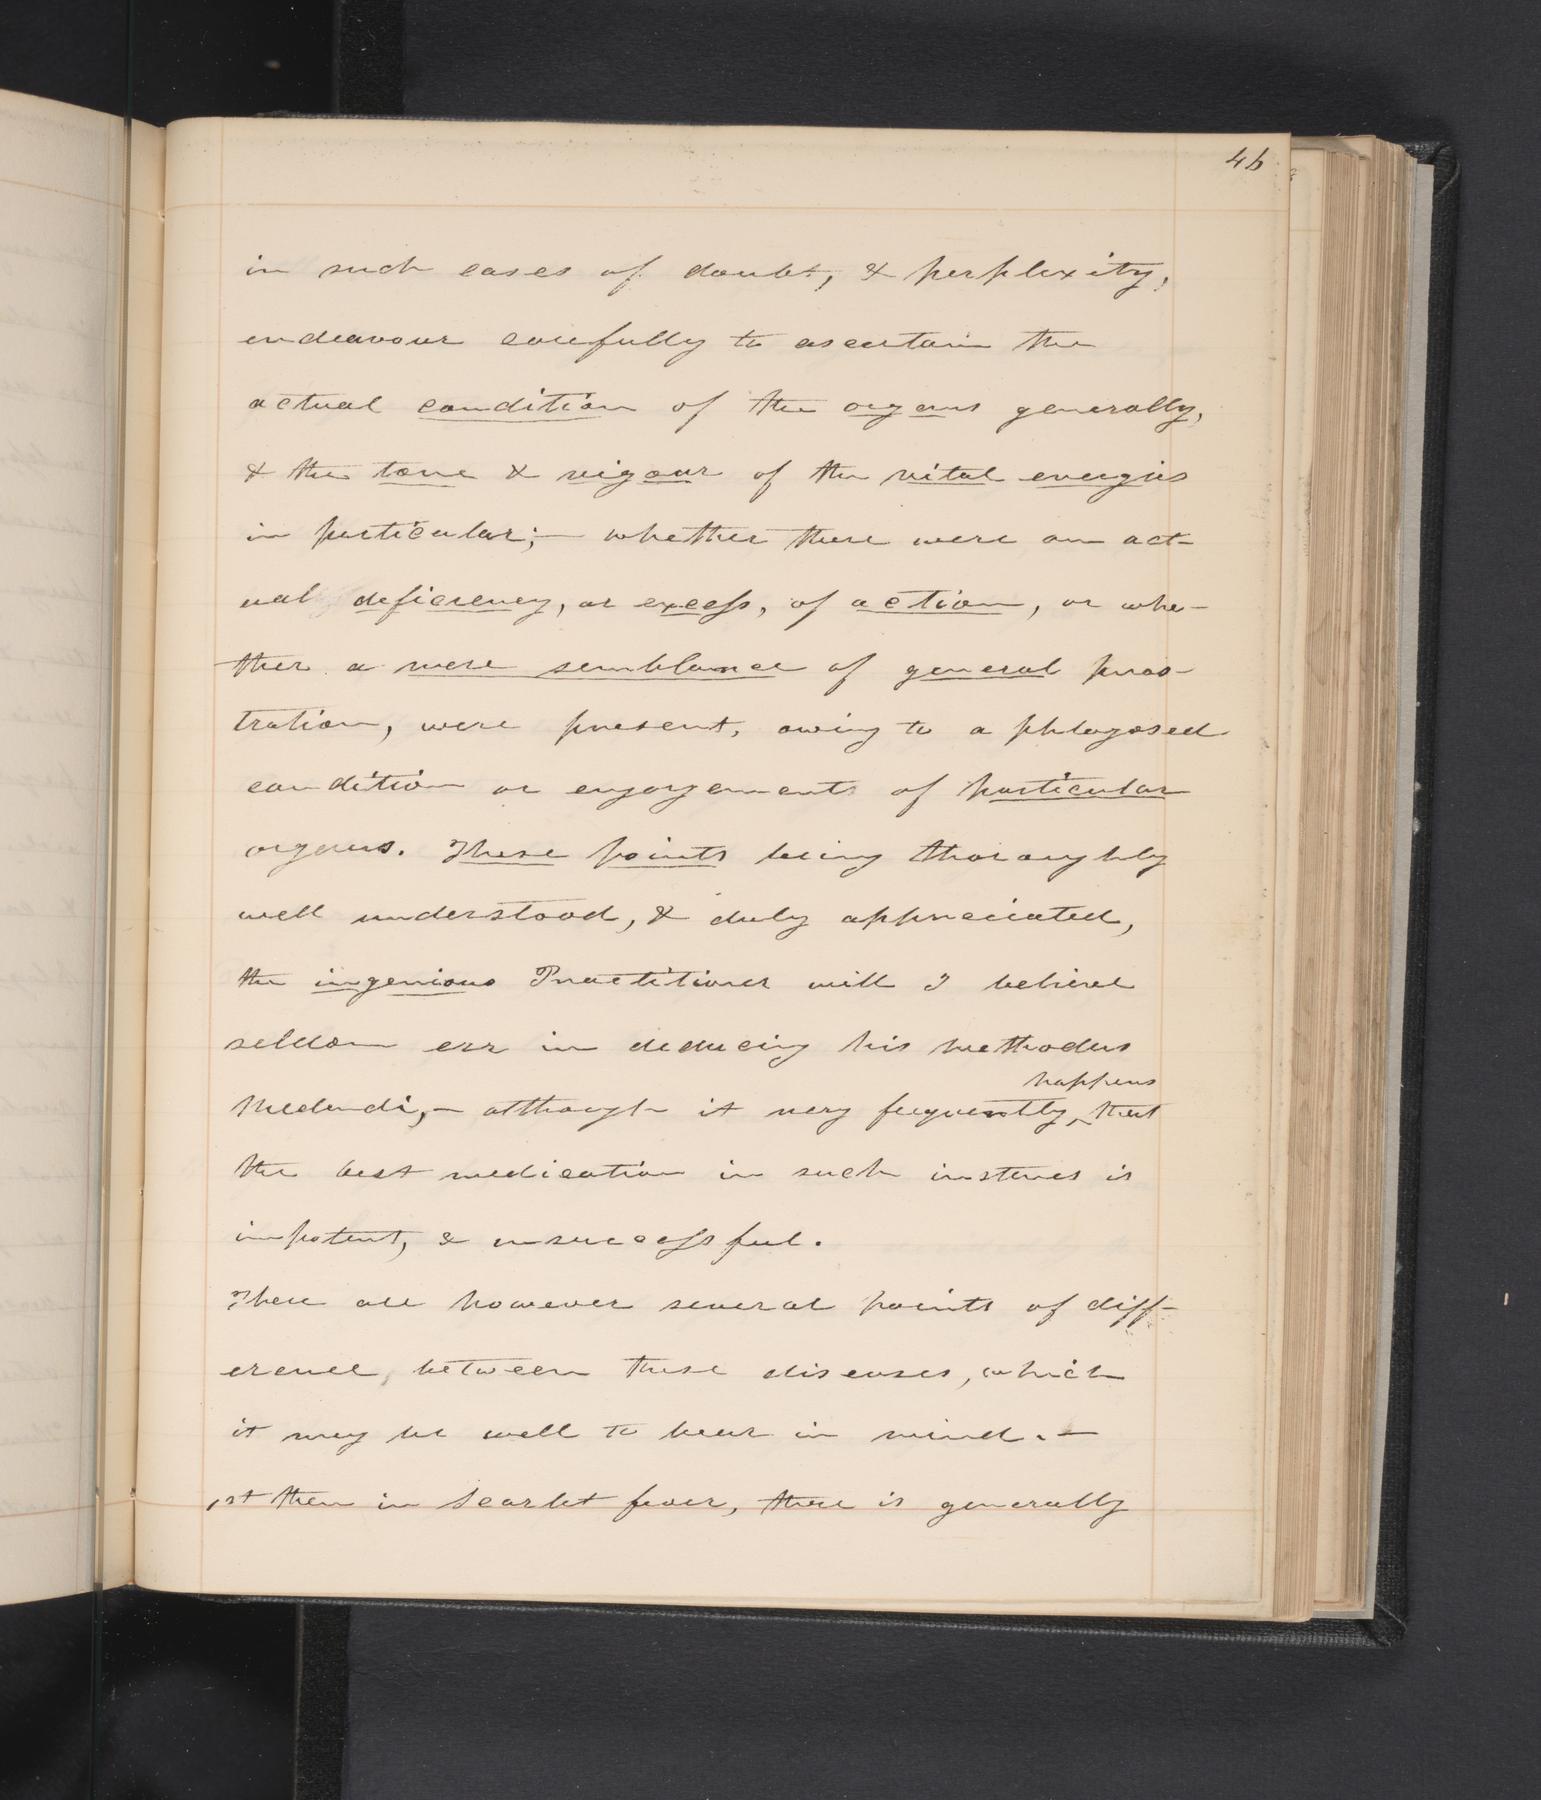 46
in such cases of doubt, & perplexity,
endeavour carefully to ascertain the
actual condition of the organs generally,
& the tone & vigour of the vital energies
in particular;— whether there were an act-
ual deficiency, or excess, of action, or whe-
ther a mere semblance of general pros-
tration, were present, owing to a phlogosed
condition or engorgements of particular
organs. These points being thoroughly
well understood, & duly appreciated,
the ingenious Practitioner will I believe
seldom err in deducing his methodus
happens
Medendi,— although it very frequently ‸ that
the best medication in such instances is
impotent, & unsuccessful.
There are however several points of diff-
erence, between these diseases, which
it may be well to bear in mind.—
1st then in Scarlet fever, there is generally